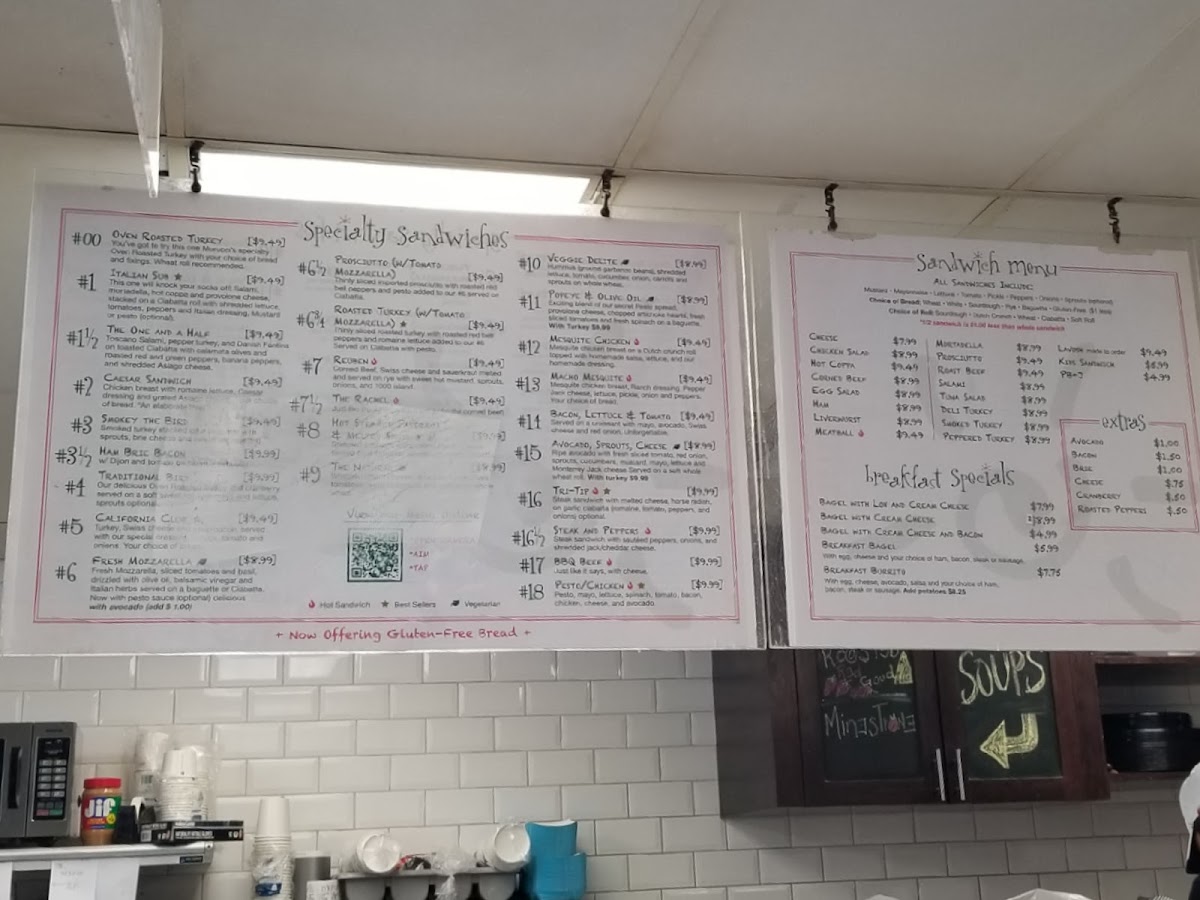 Specialty Sandwiches
#00 Oven Roasted Turkey [$9.49]
You've got to try this one Morucci's specialty
Oven Roasted Turkey with your choice of bread
and fixings. Wheat roll recommended.
#1 Italian Sub ★ [$9.49]
This one will knock your socks off! Salami,
mortadella, hot coppa and provolone cheese,
stacked on a Ciabatta roll with shredded lettuce,
tomatoes, peppers and Italian dressing. Mustard
or pesto (optional).
#1½ The One and a Half [$9.49]
Toscano Salami, pepper turkey, and Danish Fontina
on toasted Ciabatta with calamata olives and
roasted red and green peppers, banana peppers,
and shredded Asiago cheese.
#2 Caesar Sandwich [$9.49]
Chicken breast with romaine lettuce, Caesar
dressing and grated Asiago
of bread.
#3 Smokey the Bird [$9.49]
Smoked turkey
sprouts, brie cheese
#3½ Ham Brie Bacon [$9.99]
w/ Dijon and
#4 Traditional Bird [$9.99]
Our delicious Oven
served on a soft
sprouts optional.
#5 California Club ☆ [$9.49]
Turkey, Swiss cheese served
with our special tomato and
onions. Your choice of
#6 Fresh Mozzarella [$8.99]
Fresh Mozzarella, sliced tomatoes and basil,
drizzled with olive oil, balsamic vinegar and
Italian herbs served on a baguette or Ciabatta.
Now with pesto sauce (optional) delicious
with avocado (add $ 1.00)
#6½ Prosciutto (w/Tomato
Mozzarella) [$9.49]
Thinly sliced imported prosciutto with roasted red
bell peppers and pesto added to our #6 served on
Ciabatta.
#6¾ Roasted Turkey (w/Tomato
Mozzarella) ★ [$9.49]
Thinly sliced roasted turkey with roasted red bell
peppers and romaine lettuce added to our #6
Served on Ciabatta with pesto.
#7 Reuben [$9.49]
Corned Beef, Swiss cheese and sauerkraut melted
and served on rye with sweet hot mustard, sprouts,
onions, and 1000 island.
#7½ The Rachel [$9.49]
#8 Hot
#9 The [$8.99]
View our menu online
*AIM
*TAP
#10 Veggie Delite [$8.99]
Hummus (ground garbanzo beans), shredded
lettuce, tomato, cucumber, onion, carrots and
sprouts on whole wheat.
#11 Popeye & Olive Oil [$8.99]
Exciting blend of our secret Pesto spread,
provolone cheese, chopped artichoke hearts, fresh
sliced tomatoes and fresh spinach on a baguette.
With Turkey $9.99
#12 Mesquite Chicken [$9.49]
Mesquite chicken breast on a Dutch crunch roll
topped with homemade salsa, lettuce, and our
homemade dressing.
#13 Macho Mesquite [$9.49]
Mesquite chicken breast, Ranch dressing, Pepper
Jack cheese, lettuce, pickle, onion and peppers.
Your choice of bread.
#14 Bacon, Lettuce & Tomato [$9.49]
Served on a croissant with mayo, avocado, Swiss
cheese and red onion. Unforgettable.
#15 Avocado, Sprouts, Cheese [$8.99]
Ripe avocado with fresh sliced tomato, red onion,
sprouts, cucumbers, mustard, mayo, lettuce and
Monterey Jack cheese Served on a soft whole
wheat roll. With turkey $9.99
#16 Tri-Tip ★ [$9.99]
Steak sandwich with melted cheese, horse radish,
on garlic ciabatta (romaine, tomato, peppers, and
onions) optional.
#16½ Steak and Peppers [$9.99]
Steak sandwich with sauteed peppers, onions, and
shredded jack/cheddar cheese.
#17 BBQ Beef [$9.99]
Just like it says, with cheese.
#18 Pesto/Chicken ★ [$9.99]
Pesto, mayo, lettuce, spinach, tomato, bacon,
chicken, cheese, and avocado
Hot Sandwich ★ Best Sellers Vegetarian
+ Now Offering Gluten-Free Bread +
Sandwich Menu
All Sandwiches Include:
Mustard • Mayonnaise • Lettuce • Tomato • Pickle • Peppers • Onions • Sprouts (optional)
Choice of Bread: Wheat • White • Sourdough • Rye • Baguette • Gluten-Free ($1.99)
Choice of Roll: Sourdough • Dutch Crunch • Wheat • Ciabatta • Soft Roll
*1/2 sandwich is $1.00 less than whole sandwich
Cheese $7.99
Chicken Salad $8.99
Hot Coppa $9.49
Corned Beef $8.99
Egg Salad $8.99
Ham $8.99
Liverwurst $8.99
Meatball $9.49
Mortadella $8.99
Prosciutto $9.49
Roast Beef $9.49
Salami $8.99
Tuna Salad $8.99
Deli Turkey $8.99
Smokey Turkey $8.99
Peppered Turkey $8.99
made to order $9.49
Kids Sandwich $6.99
PB+J $4.99
Extras
Avocado $1.00
Bacon $1.50
Brie $1.00
Cheese $.75
Cranberry $.50
Roasted Peppers $.50
Breakfast Specials
Bagel with Lox and Cream Cheese $7.99
Bagel with Cream Cheese
Bagel with Cream Cheese and Bacon
Breakfast Bagel $5.99
With egg, cheese and your choice of ham, bacon, steak or sausage.
Breakfast Burrito $7.75
With egg, cheese, avocado, salsa and your choice of ham,
bacon, steak or sausage. Add potatoes $8.25
Roasted
Gouda
Minestrone
Soups
Jif